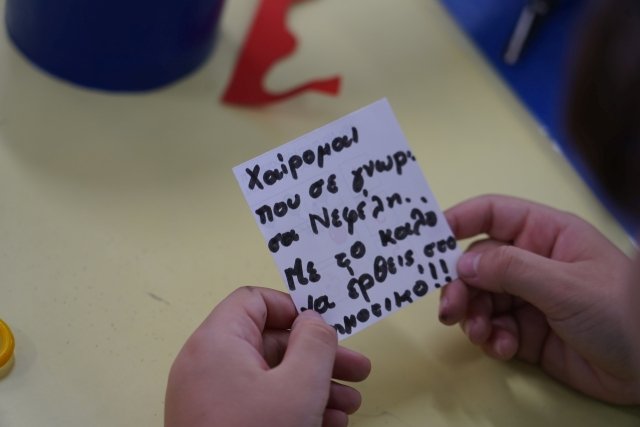 Χαίρομαι
που σε γνώρι
σα Νεφέλη..
Με το καλό
να έρθεις στο